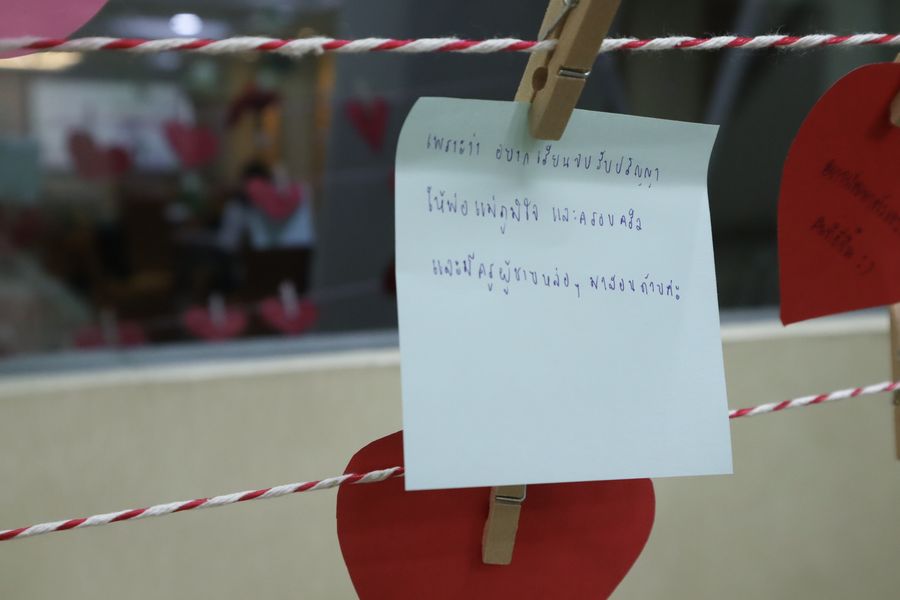 เพราะว่า อยากเรียนจบรับปริญญา
ให้พ่อแม่ภูมิใจ และครอบครัว
และมีครูผู้ชายหล่อๆ มาสอนด้วยค่ะ